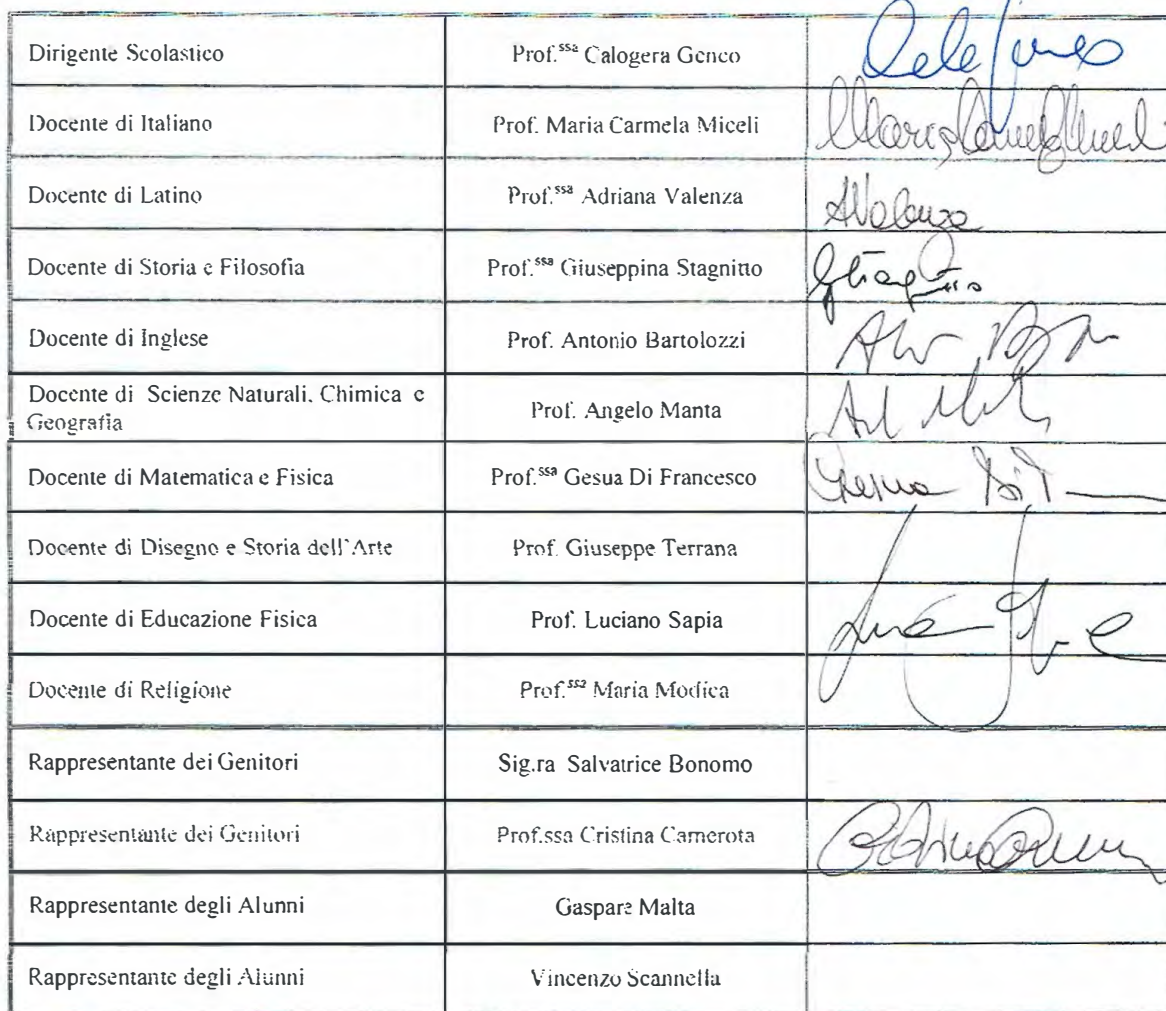 Dirigente Scolastico Prof.ssa Calogera Genco
Docente di Italiano Prof. Maria Carmela Miceli
Docente di Latino Prof.ssa Adriana Valenza AValenza
Docente di Storia e Filosofia Prof.ssa Giuseppina Stagnitto
Docente di Inglese Prof. Antonio Bartolozzi
Docente di Scienze Naturali, Chimica e
Geografia Prof. Angelo Manta
Docente di Matematica e Fisica Prof.ssa Gesua Di Francesco
Docente di Disegno e Storia dell'Arte Prof. Giuseppe Terrana
Docente di Educazione Fisica Prof. Luciano Sapia
Docente di Religione Prof.ssa Maria Modica
Rappresentante dei Genitori Sig.ra Salvatrice Bonomo
Rappresentante dei Genitori Prof.ssa Cristina Camerota
Rappresentante degli Alunni Gaspare Malta
Rappresentante degli Alunni Vincenzo Scannella